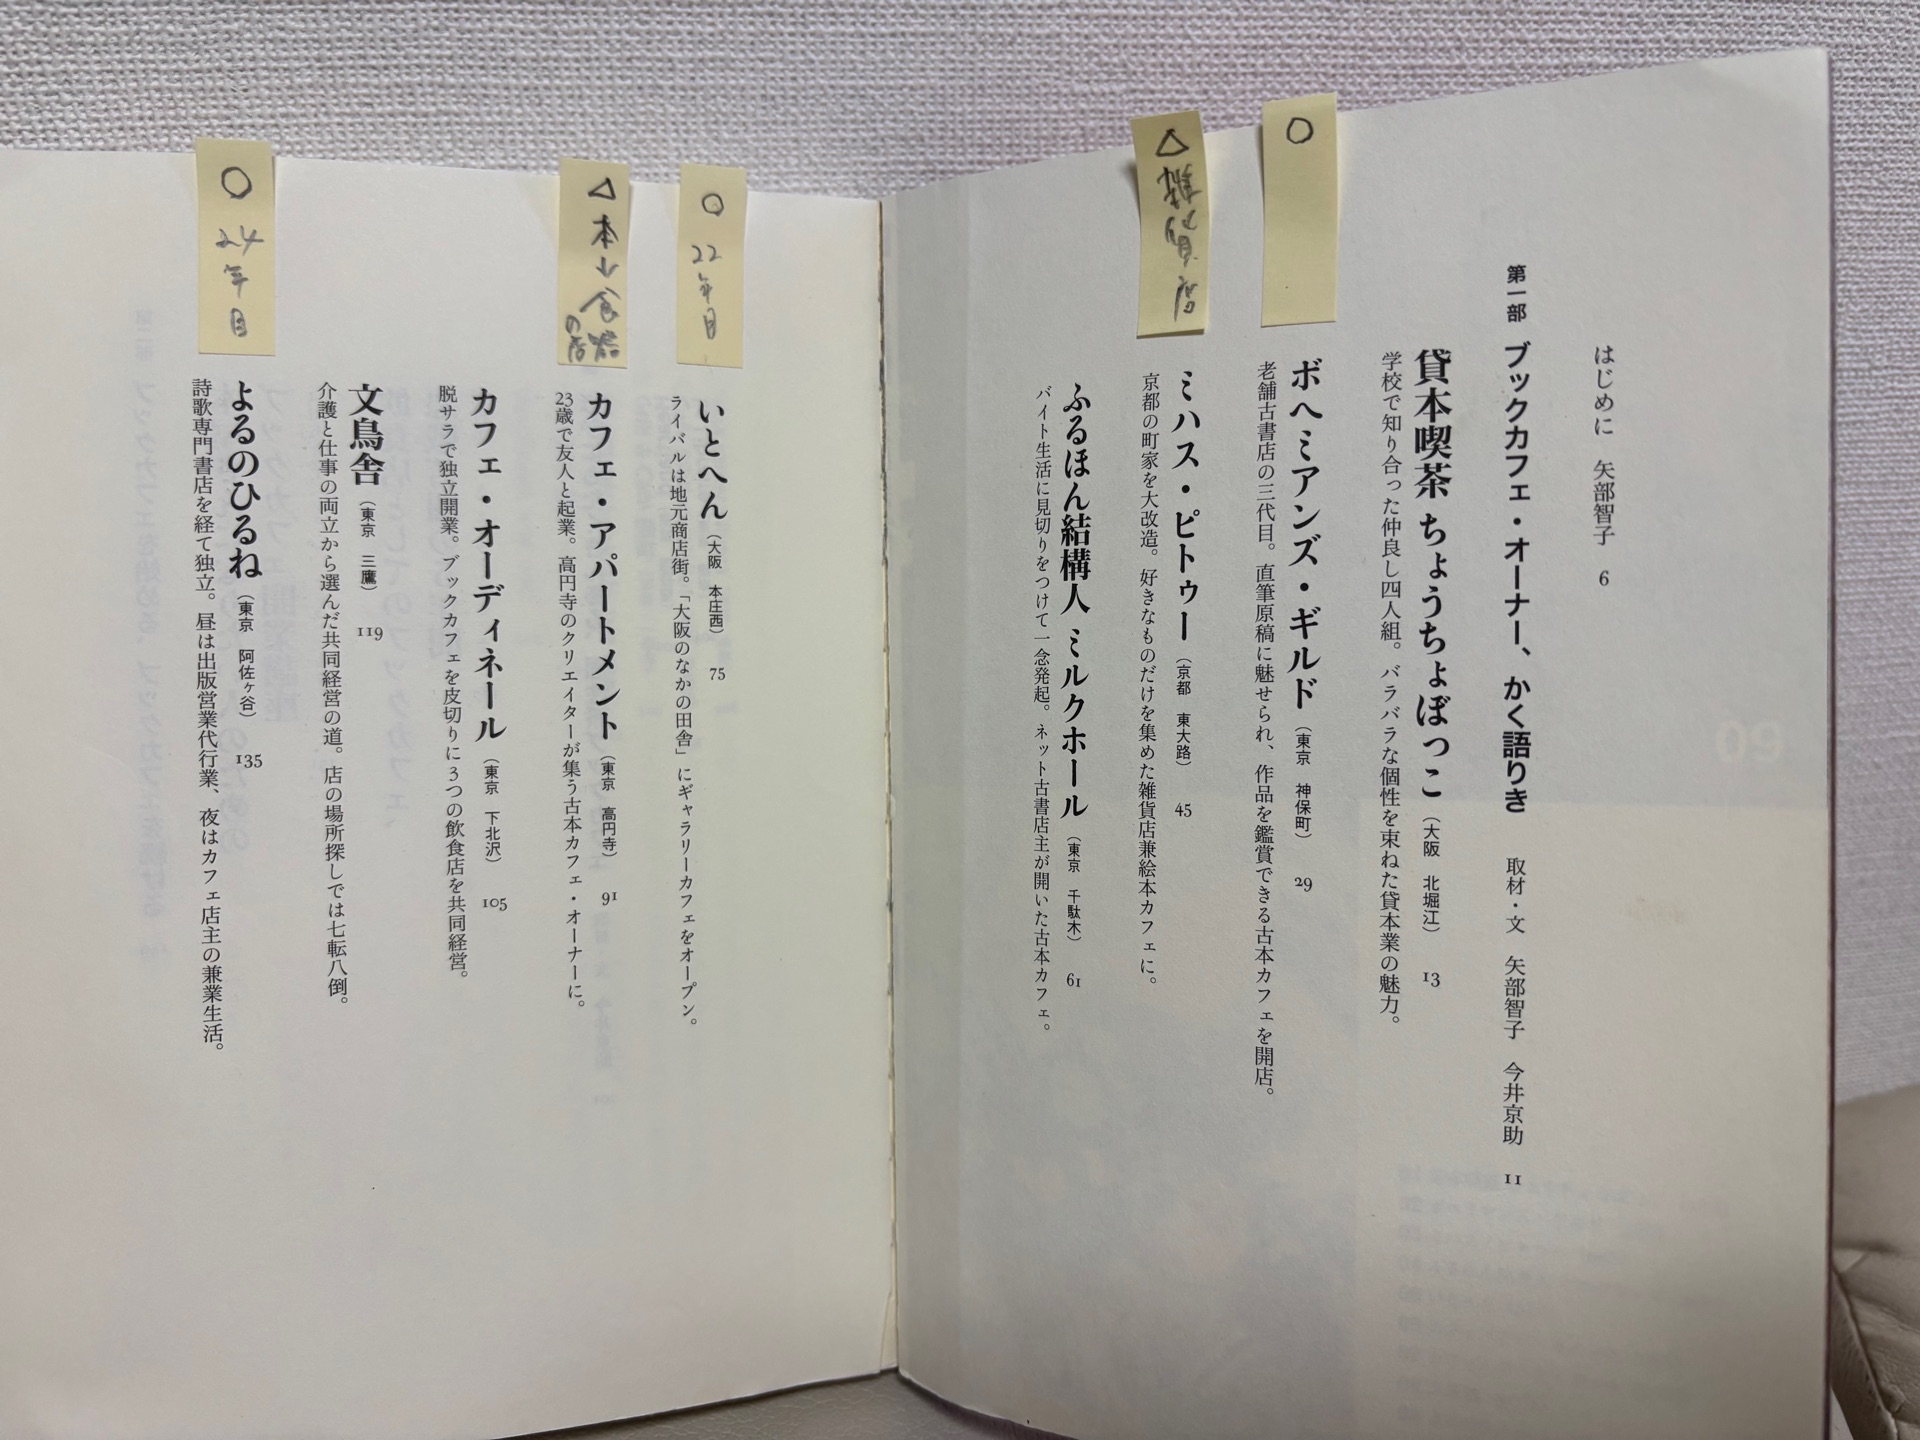 はじめに 矢部智子 6
第一部 ブックカフェ・オーナー、かく語りき 取材・文 矢部智子 今井京助 11
貸本喫茶 ちょうちょぼっこ (大阪 北堀江) 13
学校で知り合った仲良し四人組。バラバラな個性を束ねた貸本業の魅力。
○
ボヘミアンズ・ギルド (東京 神保町) 29
老舗古書店の三代目。直筆原稿に魅せられ、作品を鑑賞できる古本カフェを開店。
△ 雑貨店
ミハス・ピトゥー (京都 東大路) 45
京都の町家を大改造。好きなものだけを集めた雑貨店兼絵本カフェに。
ふるほん結構人 ミルクホール (東京 千駄木) 61
バイト生活に見切りをつけて一念発起。ネット古書店主が開いた古本カフェ。
○ 22年目
いとへん (大阪 本庄西) 75
ライバルは地元商店街。「大阪のなかの田舎」にギャラリーカフェをオープン。
△ 本↓食器の店
カフェ・アパートメント (東京 高円寺) 91
23歳で友人と起業。高円寺のクリエイターが集う古本カフェ・オーナーに。
カフェ・オーディネール (東京 下北沢) 105
脱サラで独立開業。ブックカフェを皮切りに3つの飲食店を共同経営。
文鳥舎 (東京 三鷹) 119
介護と仕事の両立から選んだ共同経営の道。店の場所探しでは七転八倒。
○ 24年目
よるのひるね (東京 阿佐ヶ谷) 135
詩歌専門書店を経て独立。昼は出版営業代行業、夜はカフェ店主の兼業生活。